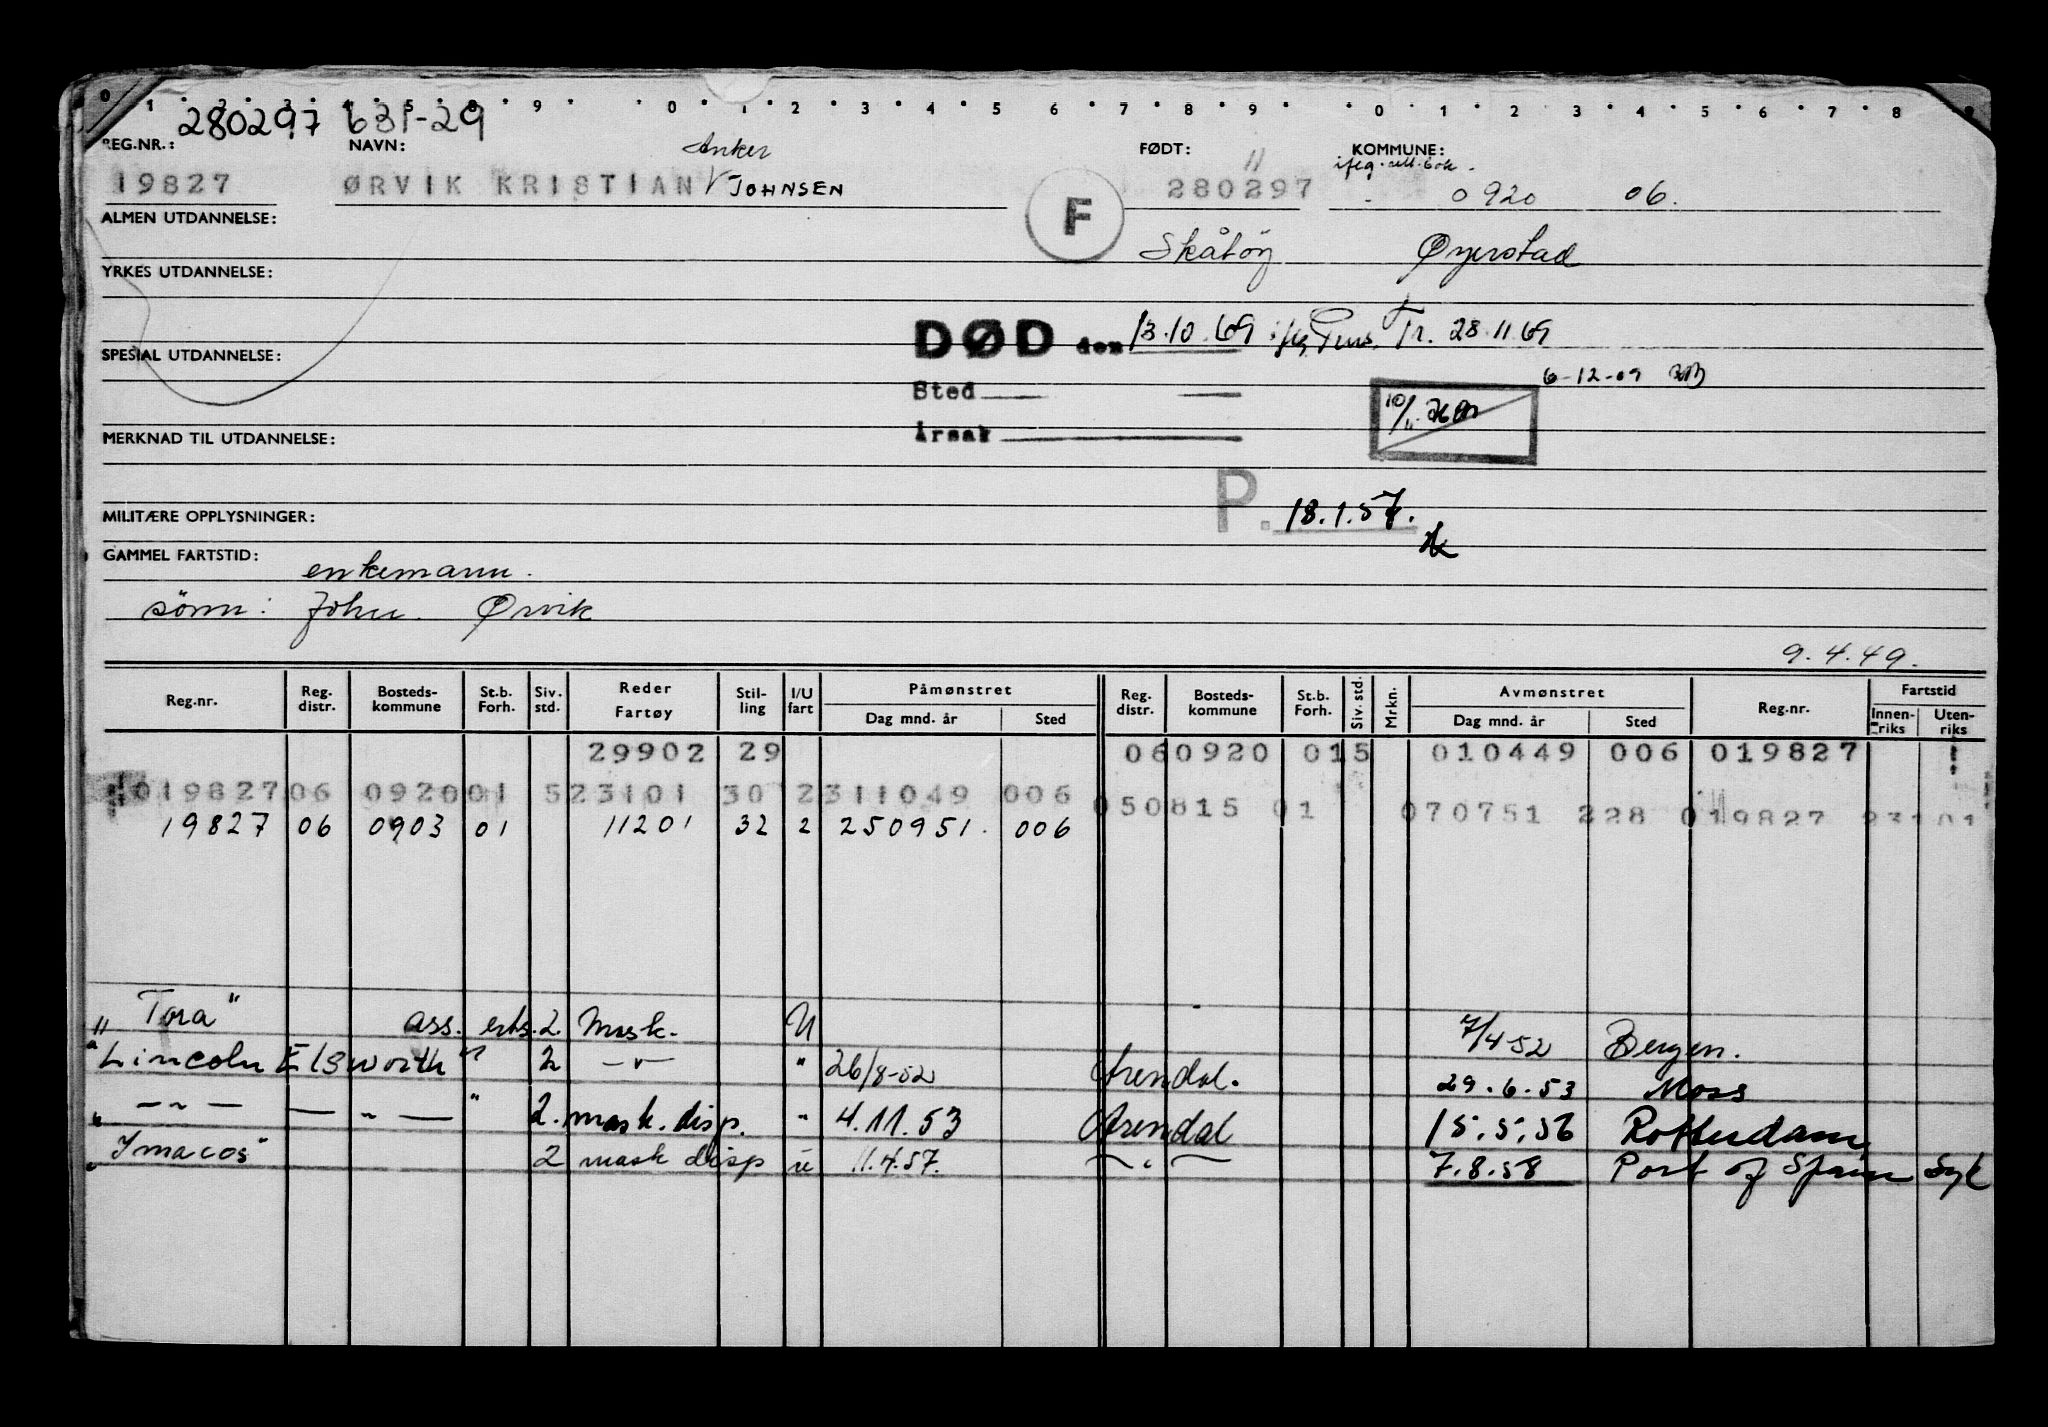 0 1 2 3 4 5 8 9 0 1 2 3 4 5 6 7 8 9 0 1 2 3 4 5 6 7 8 9
280297 631-29
REG.NR.: NAVN: Anker FØDT: 11 KOMMUNE:
19827 ØRVIK KRISTIAN V JOHNSEN 280297 0920 06.
ALMEN UTDANNELSE: F
Skåtöy Øyerstad
YRKES UTDANNELSE:
DØD den 13.10.69 Tr. 28.11.69
SPESIAL UTDANNELSE:
6-12-69
Sted
10/11
Årsak
MERKNAD TIL UTDANNELSE:
P. 18.1.57.
MILITÆRE OPPLYSNINGER:
GAMMEL FARTSTID: enkemann.
sönn: John. Ørvik
9.4.49.
Reg.nr. Reg. distr. Bosteds- kommune St.b. Forh. Siv. std. Reder Fartøy Stil- ling I/U fart Påmønstret Dag mnd. år Sted Reg. distr. Bosteds- kommune St.b. Forh. Siv. std. Mrkn. Avmønstret Dag mnd. år Sted Reg.nr. Fartstid Innen- riks Uten- riks
29902 29 060920 015 010449 006 019827
019827 06 0920 01 5 23101 30 2 311049 006 050815 01 070751 228 019827 23101
19827 06 0903 01 11201 32 2 250951. 006
"Tora" ass. 2. Mask. U 7/4 52 Bergen.
"Lincoln Elsworth" 2 —"— " 26/8-52 Arendal. 29.6.53 Moss
" —"— —"— " 2. mask. disp. " 4.11.53 Arendal 15.5.56 Rotterdam
"Imacos" 2 mask disp u 11.4.57. —"— 7.8.58 Port of Spain Syk